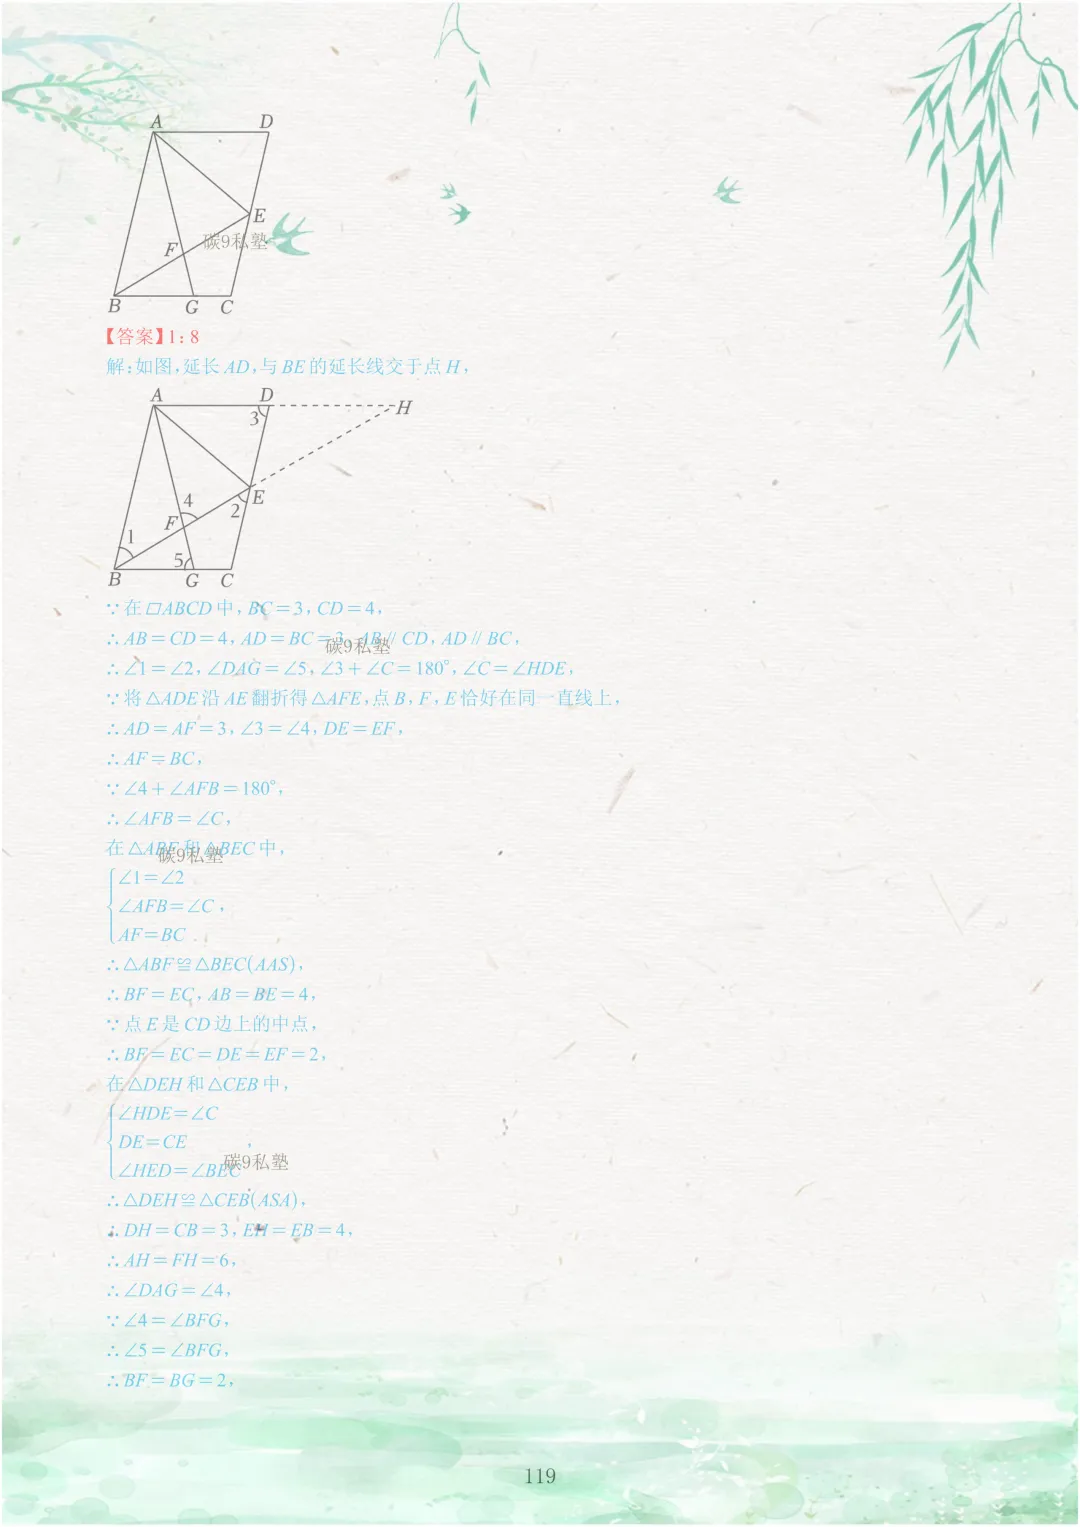 A D
E
碳9私塾
F
B G C
【答案】1:8
解:如图,延长AD,与BE的延长线交于点H,
A D
3 H
4 E
2
F
1
5
B G C
∵在□ABCD中,BC=3,CD=4,
∴AB=CD=4,AD=BC=3,AB∥CD,AD∥BC,
碳9私塾
∴∠1=∠2,∠DAG=∠5,∠3+∠C=180°,∠C=∠HDE,
∵将△ADE沿AE翻折得△AFE,点B,F,E恰好在同一直线上,
∴AD=AF=3,∠3=∠4,DE=EF,
∴AF=BC,
∵∠4+∠AFB=180°,
∴∠AFB=∠C,
在△ABF和△BEC中,
碳9私塾
∠1=∠2
∠AFB=∠C,
AF=BC
∴△ABF≌△BEC(AAS),
∴BF=EC,AB=BE=4,
∵点E是CD边上的中点,
∴BF=EC=DE=EF=2,
在△DEH和△CEB中,
∠HDE=∠C
DE=CE ,
∠HED=∠BEC
碳9私塾
∴△DEH≌△CEB(ASA),
∴DH=CB=3,EH=EB=4,
∴AH=FH=6,
∴∠DAG=∠4,
∵∠4=∠BFG,
∴∠5=∠BFG,
∴BF=BG=2,
119